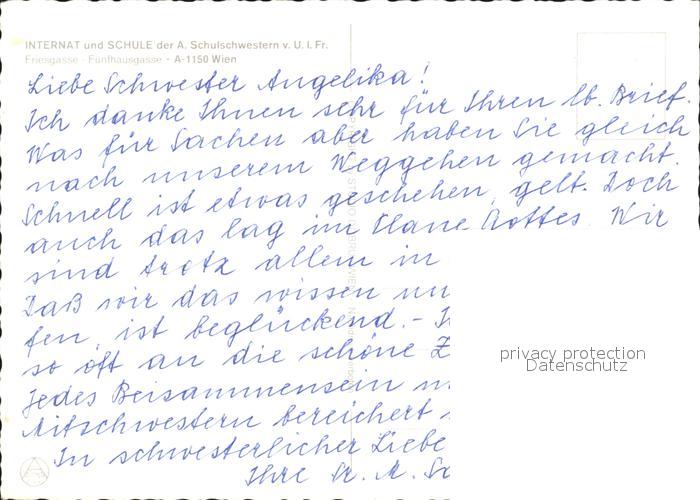 INTERNAT und SCHULE der A. Schulschwestern v. U. l. Fr.
Friesgasse - Fünfhausgasse - A-1150 Wien
Liebe Schwester Angelika!
Ich danke Ihnen sehr für Ihren lb. Brief.
Was für Sachen aber haben Sie gleich
nach unserem Weggehen gemacht.
Schnell ist etwas geschehen, gelt. Doch
auch das lag im Plane Gottes. Wir
sind trotz allem in
Daß wir das wissen
fen, ist beglückend. -
so oft an die schöne Z
Jedes Beisammensein
Mitschwestern bereichert
In schwesterlicher Liebe
Ihre Sr. M.
privacy protection
Datenschutz